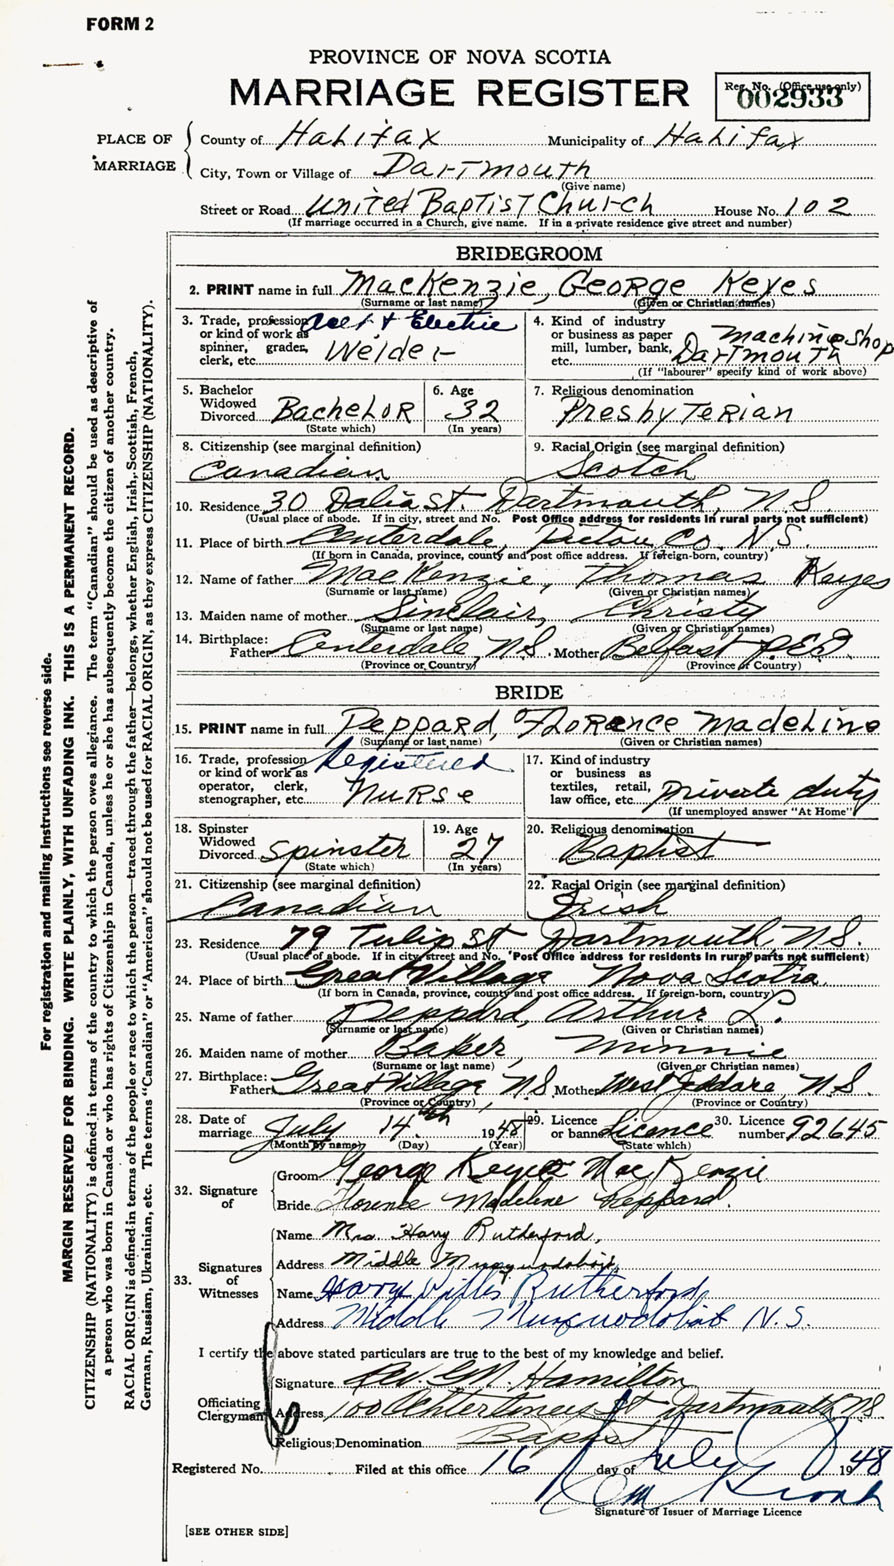 FORM 2
PROVINCE OF NOVA SCOTIA
MARRIAGE REGISTER
Reg. No. (Office use only)
002933
PLACE OF MARRIAGE
County of Halifax Municipality of Halifax
City, Town or Village of Dartmouth
(Give name)
Street or Road United Baptist Church House No. 102
(If marriage occurred in a Church, give name. If in a private residence give street and number)
BRIDEGROOM
2. PRINT name in full MacKenzie, George Keyes
(Surname or last name) (Given or Christian names)
3. Trade, profession or kind of work as spinner, grader, clerk, etc. & Electric Welder
4. Kind of industry or business as paper mill, lumber, bank, etc. Machine shop Dartmouth
(If "labourer" specify kind of work above)
5. Bachelor Widowed Divorced Bachelor
(State which)
6. Age 32
(In years)
7. Religious denomination Presbyterian
8. Citizenship (see marginal definition) Canadian
9. Racial Origin (see marginal definition) Scotch
10. Residence 30 Dalia St. Dartmouth, N.S
(Usual place of abode. If in city, street and No. Post Office address for residents in rural parts not sufficient)
11. Place of birth Centerdale, Pictou Co. N.S.
(If born in Canada, province, county and post office address. If foreign-born, country)
12. Name of father MacKenzie, Thomas Keyes
(Surname or last name) (Given or Christian names)
13. Maiden name of mother Sinclair, Christy
(Surname or last name) (Given or Christian names)
14. Birthplace: Father Centerdale, N.S. Mother Belfast P.E.I.
(Province or Country) (Province or Country)
BRIDE
15. PRINT name in full Peppard, Florence Madeline
(Surname or last name) (Given or Christian names)
16. Trade, profession or kind of work as operator, clerk, stenographer, etc. Registered Nurse
17. Kind of industry or business as textiles, retail, law office, etc. private duty
(If unemployed answer "At Home")
18. Spinster Widowed Divorced Spinster
(State which)
19. Age 27
(In years)
20. Religious denomination Baptist
21. Citizenship (see marginal definition) Canadian
22. Racial Origin (see marginal definition) Irish
23. Residence 79 Tulip St Dartmouth, N.S.
(Usual place of abode. If in city, street and No. Post Office address for residents in rural parts not sufficient)
24. Place of birth Great Village Nova Scotia
(If born in Canada, province, county and post office address. If foreign-born, country)
25. Name of father Peppard, Arthur L.
(Surname or last name) (Given or Christian names)
26. Maiden name of mother Baker, Minnie
(Surname or last name) (Given or Christian names)
27. Birthplace: Father Great Village, N.S Mother West Jeddore, N.S.
(Province or Country) (Province or Country)
28. Date of marriage July 14th 1948
(Month by name) (Day) (Year)
29. Licence or banns Licence
(State which)
30. Licence number 92645
32. Signature of
Groom George Keyes MacKenzie
Bride Florence Madeline Peppard.
33. Signatures of Witnesses
Name Mrs. Harry Rutherford,
Address Middle Musquodoboit,
Name Harry Willis Rutherford,
Address Middle Musquodoboit N.S.
I certify the above stated particulars are true to the best of my knowledge and belief.
Officiating Clergyman
Signature Rev. G.M. Hamilton
Address 100 Ochterloney St Dartmouth N.S.
Religious Denomination Baptist
Registered No. Filed at this office 16 day of July 1948
Signature of Issuer of Marriage Licence
[SEE OTHER SIDE]
For registration and mailing instructions see reverse side.
MARGIN RESERVED FOR BINDING. WRITE PLAINLY, WITH UNFADING INK. THIS IS A PERMANENT RECORD.
CITIZENSHIP (NATIONALITY) is defined in terms of the country to which the person owes allegiance. The term "Canadian" should be used as descriptive of
a person who was born in Canada or who has rights of Citizenship in Canada, unless he or she has subsequently become the citizen of another country.
RACIAL ORIGIN is defined in terms of the people or race to which the person—traced through the father—belongs, whether English, Irish, Scottish, French,
German, Russian, Ukrainian, etc. The terms "Canadian" or "American" should not be used for RACIAL ORIGIN, as they express CITIZENSHIP (NATIONALITY).